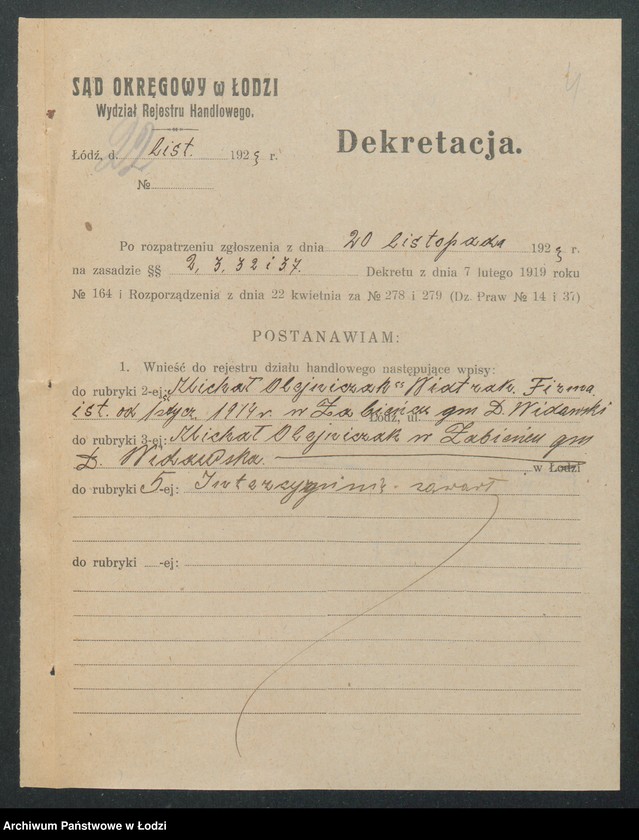 4
SĄD OKRĘGOWY w ŁODZI
Wydział Rejestru Handlowego.
Dekretacja.
Łódź, d. 22 List. 1923 r.
№
Po rozpatrzeniu zgłoszenia z dnia 20 listopada 1923 r.
na zasadzie §§ 2, 3, 32 i 37. Dekretu z dnia 7 lutego 1919 roku
№ 164 i Rozporządzenia z dnia 22 kwietnia za № 278 i 279 (Dz. Praw № 14 i 37)
POSTANAWIAM:
1. Wnieść do rejestru działu handlowego następujące wpisy:
do rubryki 2-ej: „Michał Olejniczak" Wiatrak. Firma
ist. od 1 stycz. 1914 r. w Żabieńcu gm D. Widawski
Łódź, ul.
do rubryki 3-ej: Michał Olejniczak w Żabieńcu gm
D. Widawska.
w Łodzi
do rubryki 5-ej: Intercyzy nie zawarł
do rubryki -ej:
Archiwum Państwowe w Łodzi